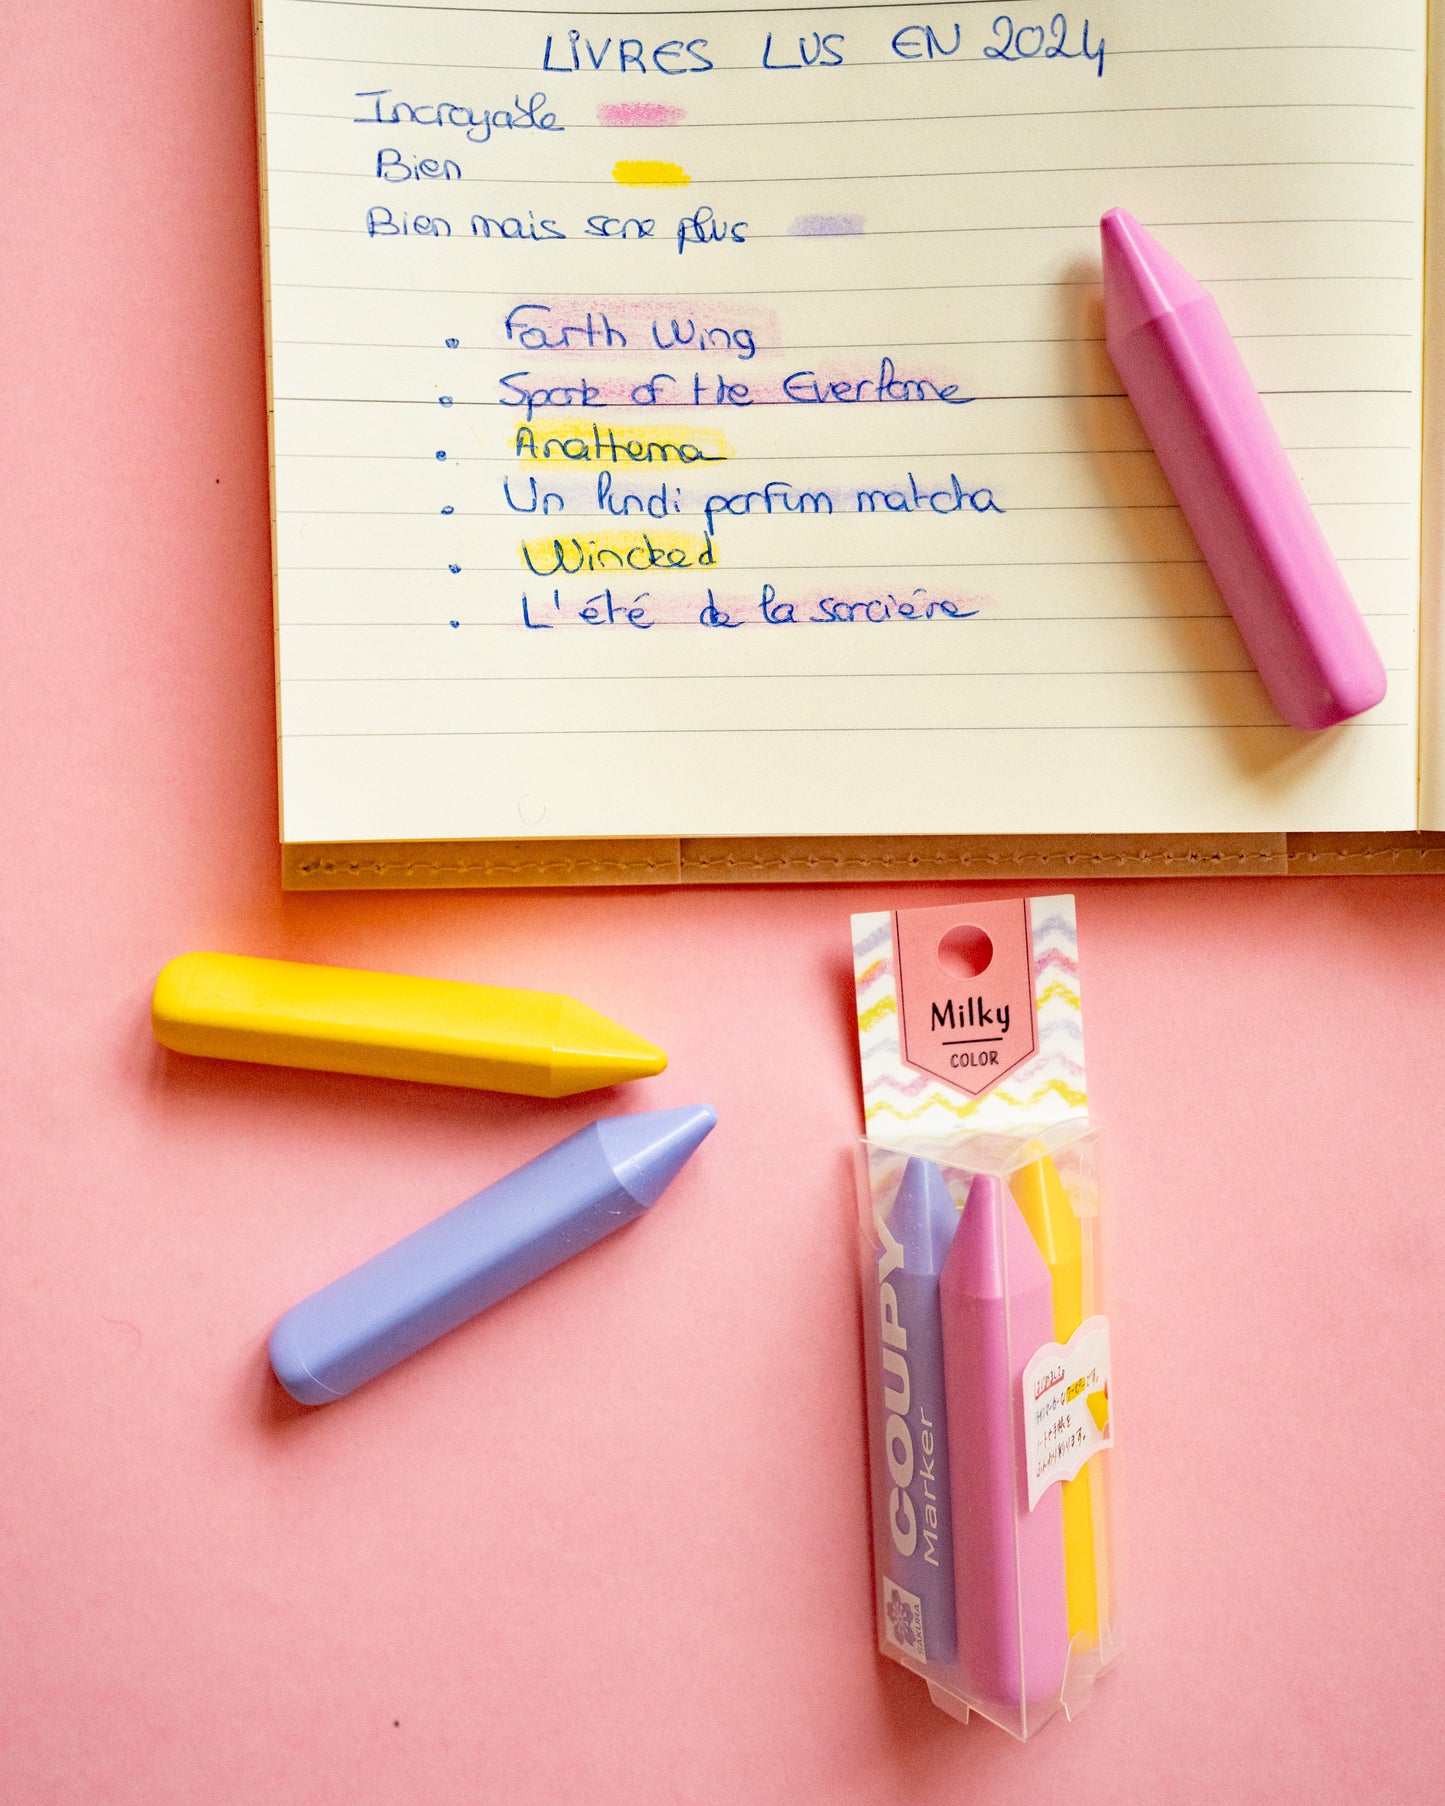 LIVRES LUS EN 2024
Incroyable
Bien
Bien mais sans plus
• Fourth Wing
• Spark of the Everflame
• Anathema
• Un lundi parfum matcha
• Wincked
• L'été de la sorcière
Milky
COLOR
COUPY
Marker
SAKURA